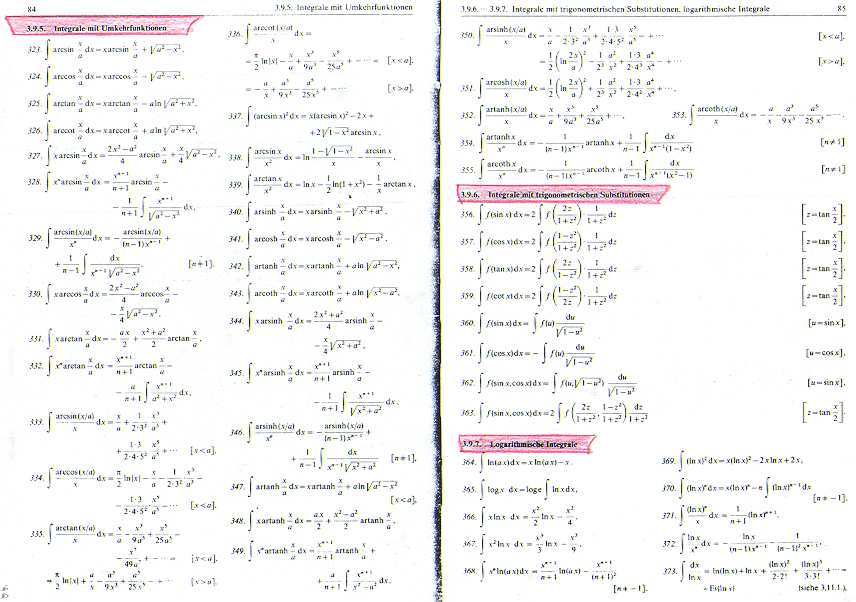 84
3.9.5. Integrale mit Umkehrfunktionen
3.9.5. Integrale mit Umkehrfunktionen
323. ∫ arcsin x/a dx = x arcsin x/a + √(a²−x²),
324. ∫ arccos x/a dx = x arccos x/a − √(a²−x²),
325. ∫ arctan x/a dx = x arctan x/a − a ln √(a²+x²),
326. ∫ arccot x/a dx = x arccot x/a + a ln √(a²+x²),
327. ∫ x arcsin x/a dx = (2x²−a²)/4 arcsin x/a + x/4 √(a²−x²),
328. ∫ xⁿ arcsin x/a dx = xⁿ⁺¹/(n+1) arcsin x/a −
− 1/(n+1) ∫ xⁿ⁺¹/√(a²−x²) dx,
329. ∫ arcsin(x/a)/xⁿ dx = − arcsin(x/a)/((n−1)xⁿ⁻¹) +
+ 1/(n−1) ∫ dx/(xⁿ⁻¹√(a²−x²)), [n≠1].
330. ∫ x arccos x/a dx = (2x²−a²)/4 arccos x/a −
− x/4 √(a²−x²),
331. ∫ x arctan x/a dx = − ax/2 + (x²+a²)/2 arctan x/a,
332. ∫ xⁿ arctan x/a dx = xⁿ⁺¹/(n+1) arctan x/a −
− a/(n+1) ∫ xⁿ⁺¹/(a²+x²) dx,
333. ∫ arcsin(x/a)/x dx = x/a + 1/(2·3²) x³/a³ +
+ 1·3/(2·4·5²) x⁵/a⁵ + ⋯ [x<a],
334. ∫ arccos(x/a)/x dx = π/2 ln|x| − x/a − 1/(2·3²) x³/a³ −
− 1·3/(2·4·5²) x⁵/a⁵ − ⋯ [x<a],
335. ∫ arctan(x/a)/x dx = x/a − x³/9a³ + x⁵/25a⁵ −
− x⁷/49a⁷ + ⋯ = [x<a],
= π/2 ln|x| + a/x − a³/9x³ + a⁵/25x⁵ − ⋯ [x>a],
336. ∫ arccot(x/a)/x dx =
= π/2 ln|x| − x/a + x³/9a³ − x⁵/25a⁵ + ⋯ = [x<a],
= − a/x + a³/9x³ − a⁵/25x⁵ + ⋯ [x>a],
337. ∫ (arcsin x)² dx = x(arcsin x)² − 2x +
+ 2√(1−x²) arcsin x,
338. ∫ arcsin x/x² dx = ln (1−√(1−x²))/x − arcsin x/x,
339. ∫ arctan x/x² dx = ln x − 1/2 ln(1+x²) − 1/x arctan x,
340. ∫ arsinh x/a dx = x arsinh x/a − √(x²+a²),
341. ∫ arcosh x/a dx = x arcosh x/a − √(x²−a²),
342. ∫ artanh x/a dx = x artanh x/a + a ln √(a²−x²),
343. ∫ arcoth x/a dx = x arcoth x/a + a ln √(x²−a²),
344. ∫ x arsinh x/a dx = (2x²+a²)/4 arsinh x/a −
− x/4 √(x²+a²),
345. ∫ xⁿ arsinh x/a dx = xⁿ⁺¹/(n+1) arsinh x/a −
− 1/(n+1) ∫ xⁿ⁺¹/√(x²+a²) dx,
346. ∫ arsinh(x/a)/xⁿ dx = − arsinh(x/a)/((n−1)xⁿ⁻¹) +
+ 1/(n−1) ∫ dx/(xⁿ⁻¹√(x²+a²)) [n≠1],
347. ∫ artanh x/a dx = x artanh x/a + a ln √(a²−x²)
[x<a],
348. ∫ x artanh x/a dx = ax/2 + (x²−a²)/2 artanh x/a,
349. ∫ xⁿ artanh x/a dx = xⁿ⁺¹/(n+1) artanh x/a +
+ a/(n+1) ∫ xⁿ⁺¹/(x²−a²) dx,
3.9.6. — 3.9.7. Integrale mit trigonometrischen Substitutionen, logarithmische Integrale
85
350. ∫ arsinh(x/a)/x dx = x/a − 1/(2·3²) x³/a³ + 1·3/(2·4·5²) x⁵/a⁵ − + ⋯ [x<a],
= 1/2 (ln 2x/a)² − 1/2³ a²/x² + 1·3/(2·4³) a⁴/x⁴ − + ⋯ [x>a],
351. ∫ arcosh(x/a)/x dx = 1/2 (ln 2x/a)² + 1/2³ a²/x² + 1·3/(2·4³) a⁴/x⁴ + ⋯
352. ∫ artanh(x/a)/x dx = x/a + x³/9a³ + x⁵/25a⁵ + ⋯, 353. ∫ arcoth(x/a)/x dx = − a/x − a³/9x³ − a⁵/25x⁵ − ⋯
354. ∫ artanh x/xⁿ dx = − 1/((n−1)xⁿ⁻¹) artanh x + 1/(n−1) ∫ dx/(xⁿ⁻¹(1−x²)) [n≠1]
355. ∫ arcoth x/xⁿ dx = − 1/((n−1)xⁿ⁻¹) arcoth x + 1/(n−1) ∫ dx/(xⁿ⁻¹(x²−1)) [n≠1]
3.9.6. Integrale mit trigonometrischen Substitutionen
356. ∫ f(sin x) dx = 2 ∫ f(2z/(1+z²)) · 1/(1+z²) dz [z = tan x/2],
357. ∫ f(cos x) dx = 2 ∫ f((1−z²)/(1+z²)) · 1/(1+z²) dz [z = tan x/2],
358. ∫ f(tan x) dx = 2 ∫ f(2z/(1−z²)) · 1/(1+z²) dz [z = tan x/2],
359. ∫ f(cot x) dx = 2 ∫ f((1−z²)/2z) · 1/(1+z²) dz [z = tan x/2],
360. ∫ f(sin x) dx = ∫ f(u) du/√(1−u²) [u = sin x],
361. ∫ f(cos x) dx = − ∫ f(u) du/√(1−u²) [u = cos x],
362. ∫ f(sin x, cos x) dx = ∫ f(u, √(1−u²)) du/√(1−u²) [u = sin x],
363. ∫ f(sin x, cos x) dx = 2 ∫ f(2z/(1+z²), (1−z²)/(1+z²)) dz/(1+z²) [z = tan x/2].
3.9.7. Logarithmische Integrale
364. ∫ ln(ax) dx = x ln(ax) − x,
365. ∫ log x dx = log e ∫ ln x dx,
366. ∫ x ln x dx = x²/2 ln x − x²/4,
367. ∫ x² ln x dx = x³/3 ln x − x³/9,
368. ∫ xⁿ ln(ax) dx = xⁿ⁺¹/(n+1) ln(ax) − xⁿ⁺¹/(n+1)²
[n≠−1].
369. ∫ (ln x)² dx = x(ln x)² − 2x ln x + 2x,
370. ∫ (ln x)ⁿ dx = x(ln x)ⁿ − n ∫ (ln x)ⁿ⁻¹ dx
[n≠−1],
371. ∫ (ln x)ⁿ/x dx = 1/(n+1) (ln x)ⁿ⁺¹,
372. ∫ ln x/xⁿ dx = − ln x/((n−1)xⁿ⁻¹) − 1/((n−1)²xⁿ⁻¹),
373. ∫ dx/ln x = ln(ln x) + ln x + (ln x)²/(2·2!) + (ln x)³/(3·3!) + ⋯
= Ei(ln x) (siehe 3.11.1.),